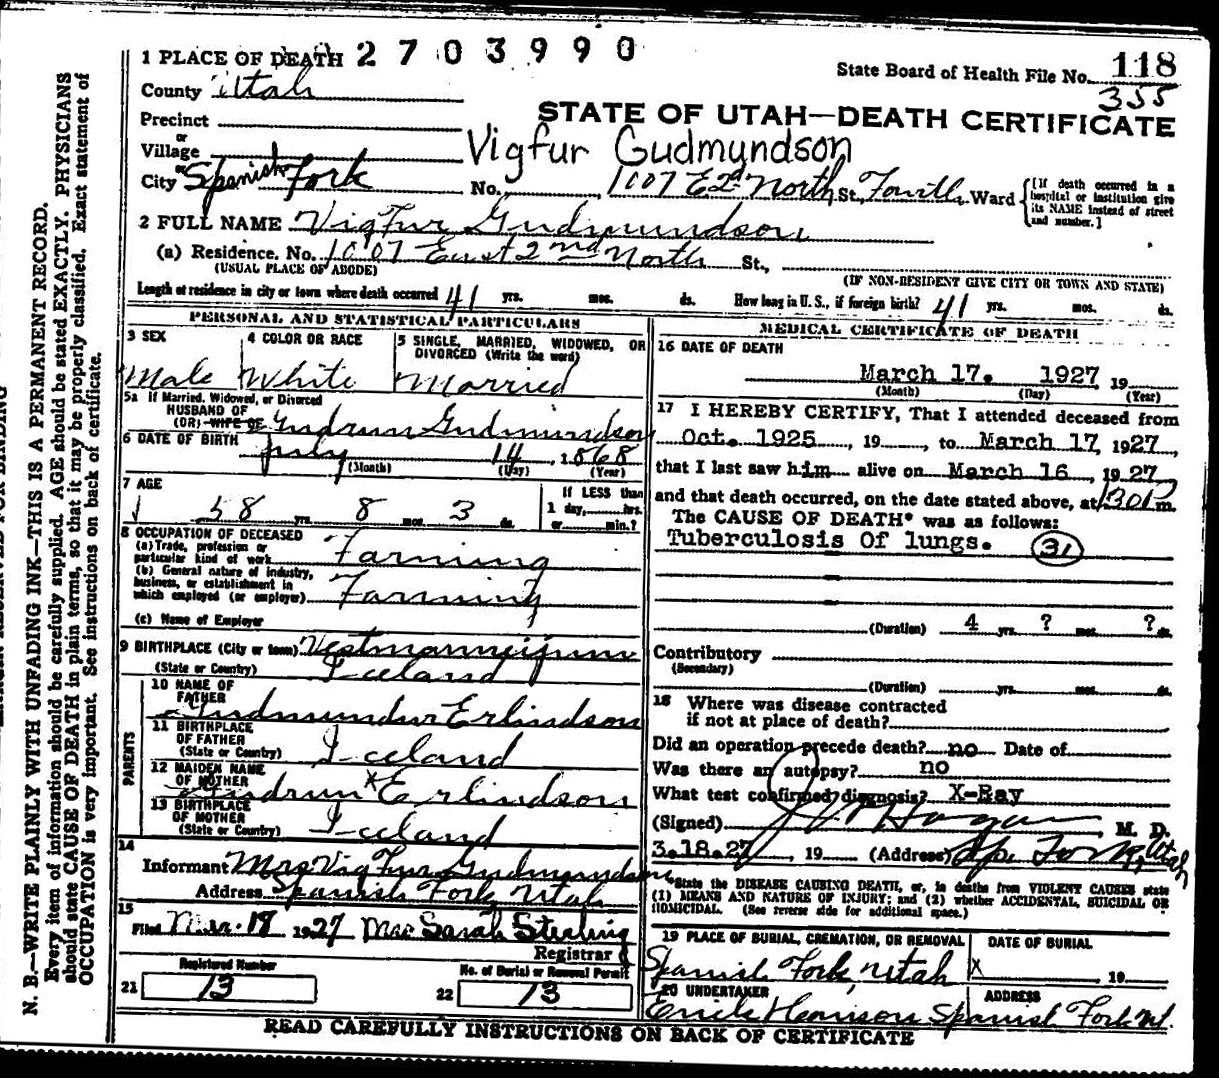 1 PLACE OF DEATH 2703990
State Board of Health File No. 118
355
County Utah
STATE OF UTAH—DEATH CERTIFICATE
Precinct
or
Village
Vigfur Gudmyndson
or
City Spanish Fork No. 1007 E 2d North St., Fourth Ward
[If death occurred in a hospital or institution give its NAME instead of street and number.]
2 FULL NAME Vigfur Gudmundson
(a) Residence. No. 1007 East 2nd North St.,
(USUAL PLACE OF ABODE) (IF NON-RESIDENT GIVE CITY OR TOWN AND STATE)
Length of residence in city or town where death occurred 41 yrs. mos. ds. How long in U. S., if foreign birth? 41 yrs. mos. ds.
PERSONAL AND STATISTICAL PARTICULARS
3 SEX
Male
4 COLOR OR RACE
White
5 SINGLE, MARRIED, WIDOWED, OR
DIVORCED (Write the word)
Married
5a If Married, Widowed, or Divorced
HUSBAND OF
(OR) WIFE OF Gudrun Gudmundson
6 DATE OF BIRTH
July 14, 1868
(Month) (Day) (Year)
7 AGE
58 yrs. 8 mos. 3 ds.
If LESS than
1 day, hrs.
or min.?
8 OCCUPATION OF DECEASED
(a) Trade, profession or
particular kind of work Farming
(b) General nature of industry,
business, or establishment in
which employed (or employer) Farming
(c) Name of Employer
9 BIRTHPLACE (City or town)
(State or Country) Iceland
PARENTS
10 NAME OF
FATHER
Gudmundur Erlindson
11 BIRTHPLACE
OF FATHER
(State or Country) Iceland
12 MAIDEN NAME
OF MOTHER
Gudrun Erlindson
13 BIRTHPLACE
OF MOTHER
(State or Country) Iceland
14
Informant Mrs Vigfur Gudmundson
Address Spanish Fork Utah
15
Filed Mar. 19 1927 Mrs Sarah Sterling
Registrar
Registered Number
21 13
No. of Burial or Removal Permit
22 13
MEDICAL CERTIFICATE OF DEATH
16 DATE OF DEATH
March 17. 1927 19
(Month) (Day) (Year)
17 I HEREBY CERTIFY, That I attended deceased from
Oct. 1925, 19, to March 17, 1927,
that I last saw him alive on March 16, 1927
and that death occurred, on the date stated above, at 130P m.
The CAUSE OF DEATH* was as follows:
Tuberculosis Of lungs. 31
(Duration) 4 yrs. ? mos. ? ds.
Contributory
(Secondary)
(Duration) yrs. mos. ds.
18 Where was disease contracted
if not at place of death?
Did an operation precede death? no Date of
Was there an autopsy? no
What test confirmed diagnosis? X-Ray
(Signed) Hagan, M. D.
3.18.27, 19 (Address) Sp. Fork, Utah
*State the DISEASE CAUSING DEATH, or, in deaths from VIOLENT CAUSES state
(1) MEANS AND NATURE OF INJURY; and (2) whether ACCIDENTAL, SUICIDAL OR
HOMICIDAL. (See reverse side for additional space.)
19 PLACE OF BURIAL, CREMATION, OR REMOVAL
Spanish Fork, Utah
DATE OF BURIAL
X , 19
20 UNDERTAKER
ADDRESS
Spanish Fork Ut.
READ CAREFULLY INSTRUCTIONS ON BACK OF CERTIFICATE
N. B.—WRITE PLAINLY WITH UNFADING INK—THIS IS A PERMANENT RECORD.
Every item of information should be carefully supplied. AGE should be stated EXACTLY. PHYSICIANS
should state CAUSE OF DEATH in plain terms, so that it may be properly classified. Exact statement of
OCCUPATION is very important. See instructions on back of certificate.